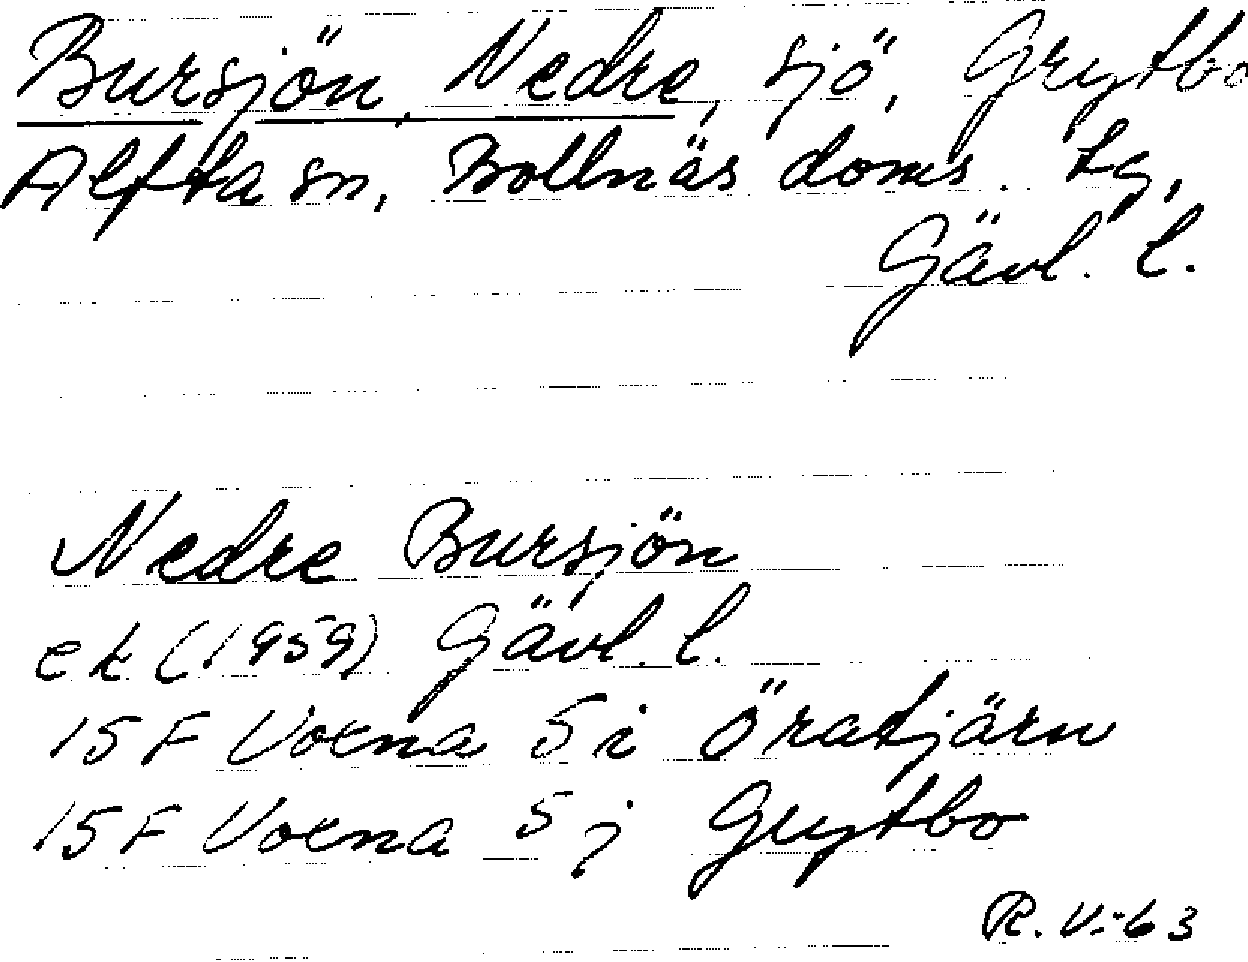 Bursjön, Nedre, sjö, Grytbo
Alfta sn, Bollnäs doms. tg,
Gävl. l.
Nedre Bursjön
ek (1959) Gävl. l.
15 F Voxna 5 i Öratjärn
15 F Voxna 5 j Grytbo
R. V.-63